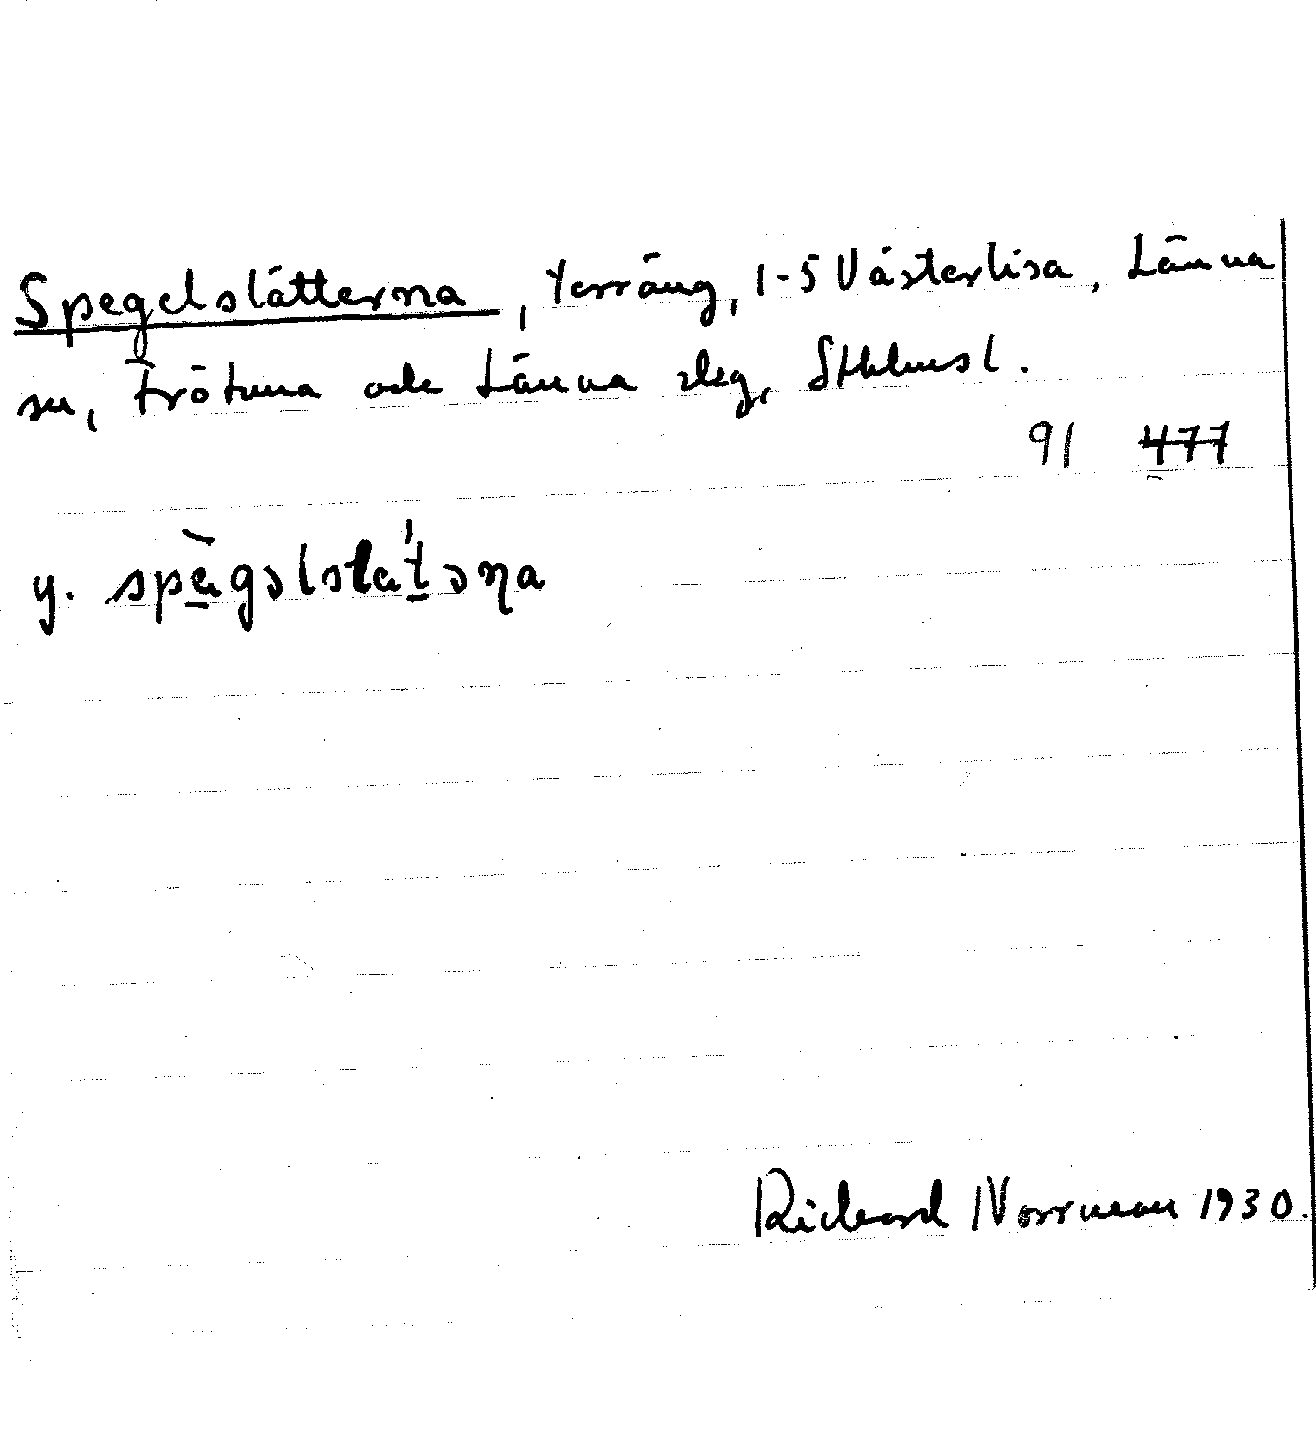 Spegelslåtterna, Terräng, 1-5 Västerlisa, Länna
sn, Frötuna och Länna slg, Sthlmsl.
91 477
y. spègəlsla'təṇa
Rickard Norrman 1930.